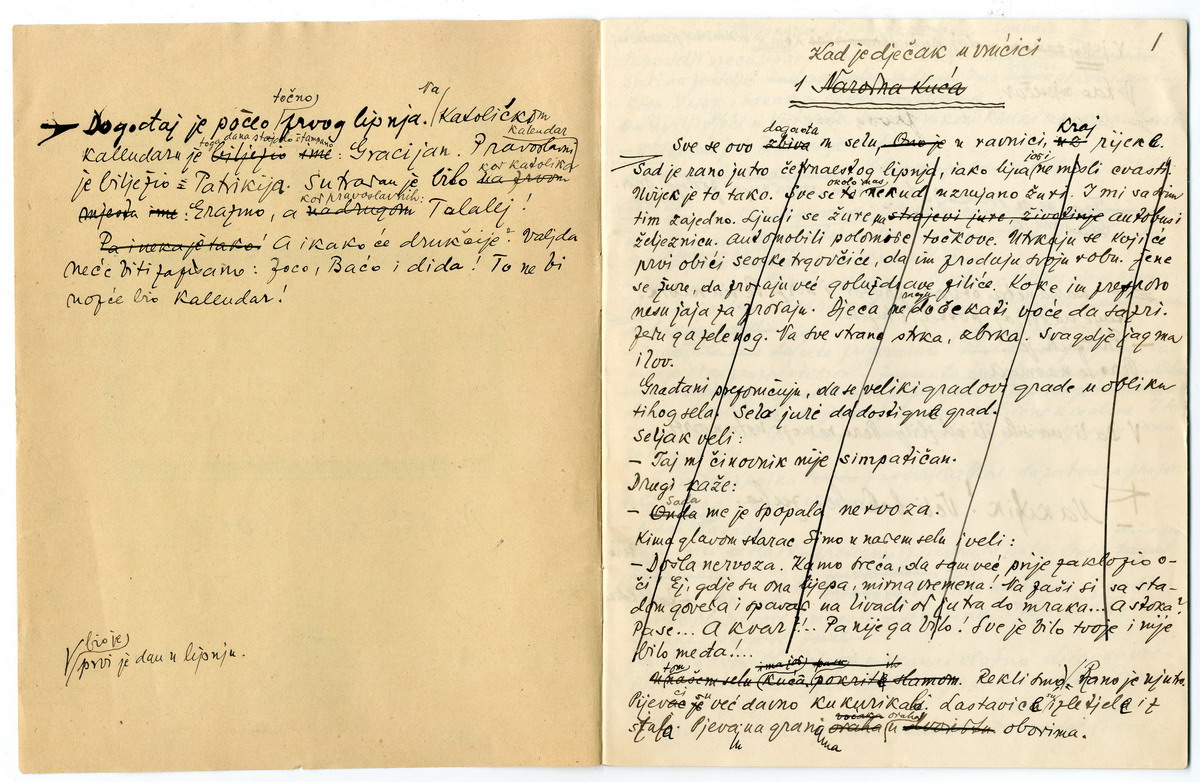 točno, Na
Dogođaj je počeo prvog lipnja. Katoličkom
dana stajalo štampano kalendar
kalendaru je bilježio sve: Gracijan. Pravoslavni
kod katolika
je bilježio = Patrikija. Sutradan je bilo na prvom
kod pravoslavnih:
mjestu ime: Erazmo, a na drugom Talalej!
Pa i neka je tako! A i kako će drukčije? Valjda
neće biti zapisano: Joco, Baćo i dida! To ne bi
nojće bio kalendar!
bio je
prvi je dan u lipnju.
1
Kad je dječak u vrućici
1 Narodna kuća
događa kraj
Sve se ovo zbiva u selu, Ono je u ravnici, uz rijeke.
još
Sad je rano jutro četrnaestog lipnja, iako lipa ne misli cvasti.
oko nas
Uvijek je to tako. Sve se nekud uzrujano žuri. I mi sa svim
tim zajedno. Ljudi se žure na strojevi jure, životinje autobusi
željeznicu. Automobili polomiše točkove. Utrkuju se koji će
prvi obići seoske trgovčiće, da im prodaju svoju robu. Žene
se žure, da prodaju već goluždrave piliće. Koke im presporo
mogu
nesu jaja za prodaju. Djeca ne dočekati voće da sazri.
Jedu ga zelenog. Na sve strane strka, zbrka. Svagdje jagma
i lov.
Građani prepričuju, da se veliki gradovi grade u obliku
tihog sela. Sela jure da dostignu grad.
Seljak veli:
– Taj mi činovnik nije simpatičan.
Drugi kaže:
Sada
– Onda me je spopala nervoza.
Kima glavom starac Simo u našem selu i veli:
– Došla nervoza. Kamo sreća, da sam već prije zaklopio o-
či. Ej, gdje su ona lijepa, mirna vremena! Na paši si sa sta-
dom goveda i spavaš na livadi od jutra do mraka... A stoka?
Pase... A kvar?!.. Pa nije ga bilo! Sve je bilo tvoje i nije
bilo međa!...
tom ima još ih
U našem selu kuća pokrite slamom. Rekli smo, Rano je ujutro.
Pijevac je već davno kukurikao. Lastavice izletjele iz
voćaka oraha
štala. Pjevaju na grani oraha u dvorištu oborima.